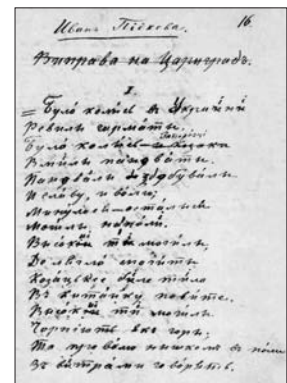 Иванъ Підкова. 16
Виправа на Цариградъ.
I.
= Було колись в Украіни
Ревилы гарматы.
Запорозці
Було колись — козаки
Вмилы пановаты.
Пановалы, здобувалы
И славу, и волю;
Минулося: осталыся
Могилы на поли.
Высокій ти могилы,
Де лягло спочиты
Козацькое биле тило
Въ китайку повите.
Высокій ти могилы
Чорніють якъ горы,
Та про волю нишкомъ в поли
Зъ витрамы говорять.